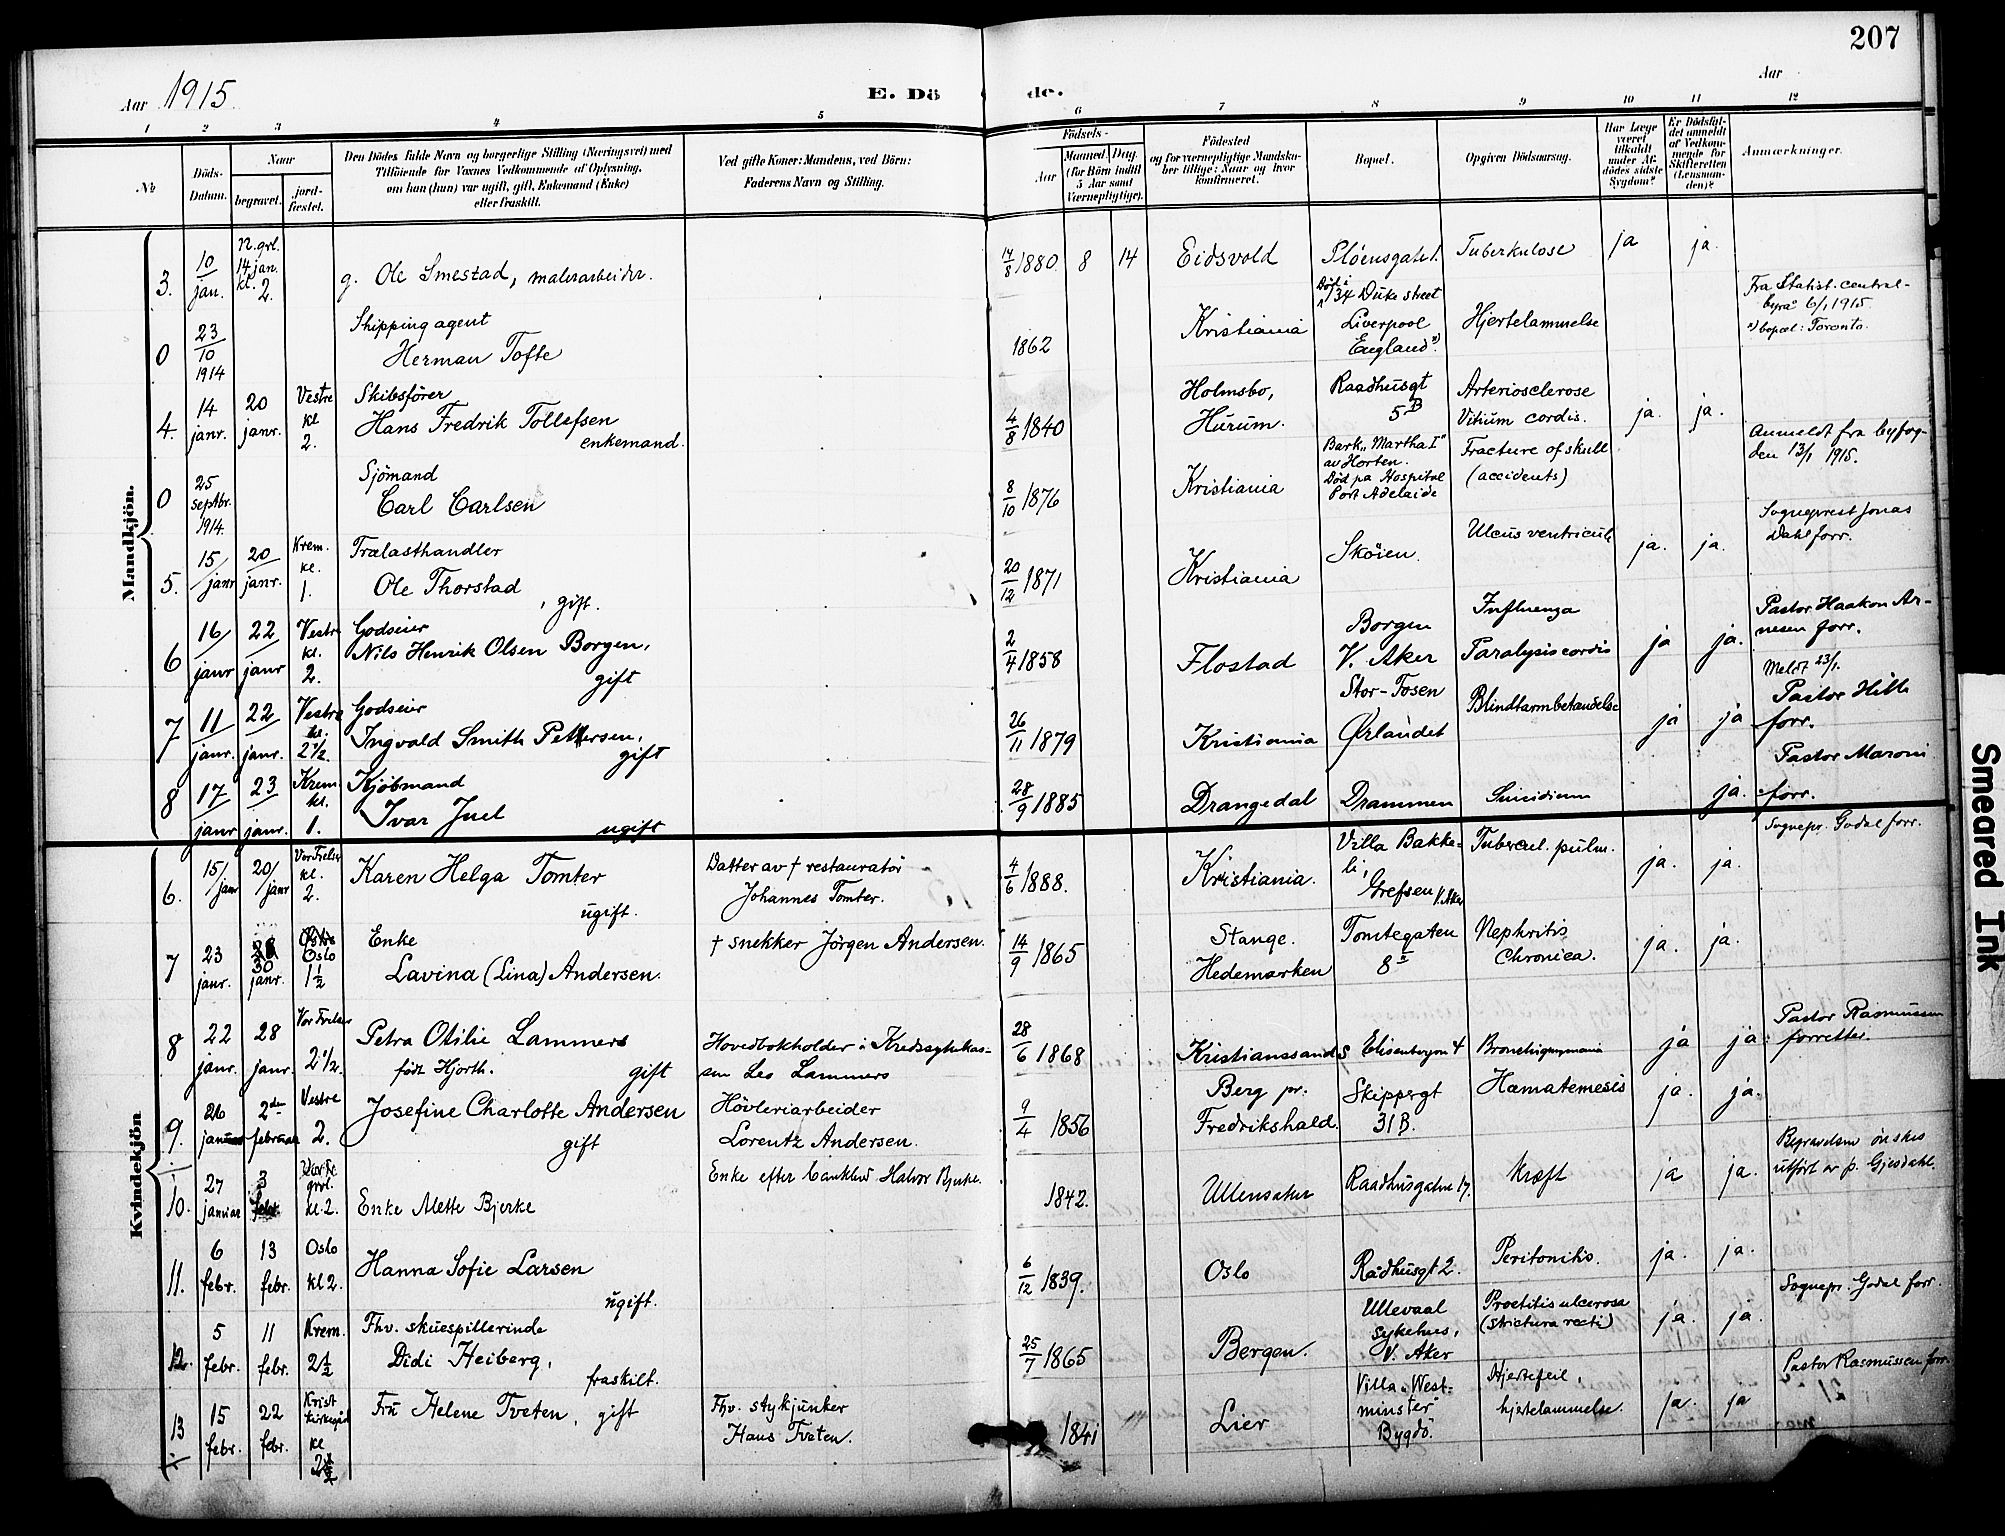 207
Aar 1915.
E. Dö de.
Aar
1 2 3 4 5 6 7 8 9 10 11 12
No
Döds-
Datum.
Naar
begravet.
jord-
fæstet.
Den Dödes fulde Navn og borgerlige Stilling (Næringsvei) med
Tilföiende for Voxnes Vedkommende af Oplysning,
om han (hun) var ugift, gift, Enkemand (Enke)
eller fraskilt.
Ved gifte Koner: Mandens, ved Börn:
Faderens Navn og Stilling.
Födsels-
Aar
Maaned. Dag.
(for Börn indtil
5 Aar samt
Værnepligtige).
Födested
og for værnepligtige Mandsku-
ber tillige: Naar og hvor
konfirmeret.
Bopæl.
Opgiven Dödsaarsag.
Har Læge
været
tilkaldt
under Af-
dödes sidste
Sygdom?
Er Dödsfal-
det anmeldt
af Vedkom-
mende for
Skifteretten
(Lensman-
den)?
Anmærkninger.
Mandkjön.
3. 10/jan. N. grl. 14 jan. kl. 2. g. Ole Smestad, malerarbeider. 14/8 1880. 8 14 Eidsvold Plöensgate 1. Tuberkulose ja ja.
0 23/10 1914 Shipping agent
Herman Tofte 1862 Kristiania Död i 134 Duke street
Liverpool
England x) Hjertelammelse
Fra Statist. central-
byrå 6/1 1915.
x) bopæl: Toronto.
4. 14 janr. 20 janr. Vestre kl 2. Skibsförer
Hans Fredrik Tollefsen
enkemand. 4/8 1840 Holmsbo,
Hurum. Raadhusgt
5 B Arteriosclerose
Vitium cordis. ja. ja.
0 25 septbr. 1914. Sjömand
Carl Carlsen 8/10 1876 Kristiania Bark "Martha I"
av Horten.
Död pa Hospital
Port Adelaide Fracture of skull
(accidents)
Anmeldt fra byfog-
den 13/1 1915.
5. 15/janr 20/janr. Krem. kl. 1. Trælasthandler
Ole Thorstad, gift. 20/12 1871 Kristiania Sköien. Ulcus ventriculi ja. ja.
Sogneprest Jonas
Dahl forr.
6 16/janr 22/janr Vestre kl. 2. Godseier
Nils Henrik Olsen Borgen,
gift 2/4 1858 Flostad Borgen
V. Aker Influenza
Paralysis cordis ja ja.
Pastor Haakon Ar-
nesen forr.
Meldt 23/1.
7 11/janr. 22/janr. Vestre kl. 2 1/2. Godseier
Ingvald Smith Pettersen,
gift 26/11 1879 Kristiania Stor-Fosen
Ørlandet Blindtarmbetændelse ja ja
Pastor Hille
forr.
8 17/janr 23/janr. Krem. kl. 1. Kjöbmand
Ivar Juel
ugift 28/9 1885 Drangedal Drammen Suicidium ja.
Pastor Maroni
forr.
Kvindekjön
6. 15/janr 20/janr Vor Frelser kl. 2. Karen Helga Tomter
ugift. Datter av † restauratör
Johannes Tomter. 4/6 1888. Kristiania. Villa Bakke-
li,
Grefsen V. Aker Tubercul. pulm. ja. ja.
Sognepr. Godal forr.
7 23 janr. 30 janr. Oslo 1 1/2 Enke
Lavina (Lina) Andersen. † snekker Jörgen Andersen. 14/9 1865 Stange.
Hedemarken Tomtegaten
8 I Nephritis
Chronica. ja. ja.
8 22 janr. 28 janr. Vor Frelser 2 1/2. Petra Otilie Lammers
födt Hjorth. gift Hovedbokholder i Kredssykekas-
sen Leo Lammers 28/6 1868 Kristianssand S Elisenbergvn 4 ja ja.
Pastor Rasmussen
forretter.
9. 26 januar 2den februar Vestre 2. Josefine Charlotte Andersen
gift Hövleriarbeider
Lorentz Andersen. 9/4 1856 Berg pr.
Fredrikshald. Skippergt
31 B. Hæmatemesis ja. ja.
10. 27 januar 3 febr. Vor Fr. grvl. kl. 2. Enke Mette Bjerke Enke efter bankbud Halvor Bjerke. 1842. Ullensaker Raadhusgaten 17. Kræft ja ja.
Begravelsen önskes
utfört av p. Gjesdahl.
11. 6 febr. 13 febr. Oslo kl 2. Hanna Sofie Larsen
ugift. 6/12 1839. Oslo Rådhusgt 2. Peritonitis. ja. ja.
12. 5 febr. 11 febr. Krem. 2 1/2 Fhv. skuespillerinde
Didi Heiberg,
fraskilt. 25/7 1865 Bergen. Ullevaal
sykehus,
V. Aker Proctitis ulcerosa
(strictura recti) ja. ja.
Sognepr. Godal forr.
13 15 febr. 22 febr. Krist kirkegård kl 2 1/2 Fru Helene Tveten, gift Fhv. stykjunker
Hans Tveten. 1841 Lier Villa "West-
minster"
Bygdö. Hjertefeil,
hjertelammelse. ja. ja
Pastor Rasmussen forr.
Smeared Ink